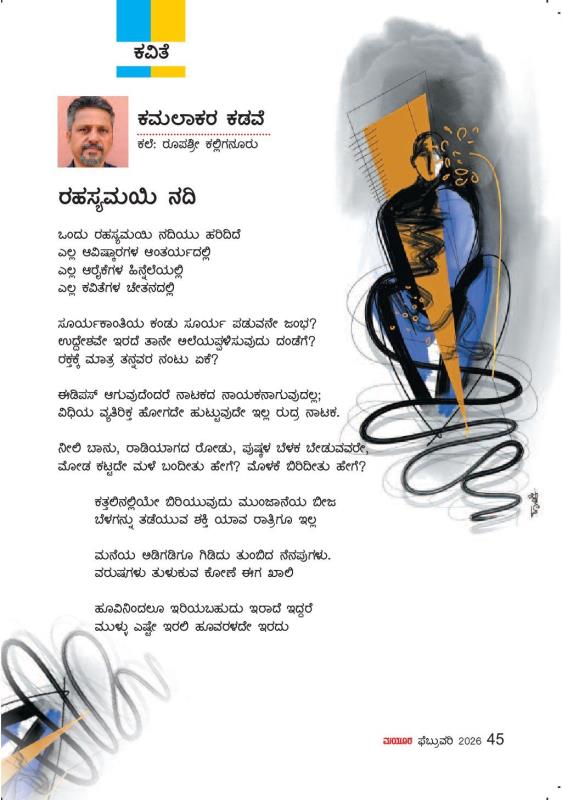 ಕವಿತೆ
ಕಮಲಾಕರ ಕಡವೆ
ಕಲೆ: ರೂಪಶ್ರೀ ಕಲ್ಲಿಗನೂರು
ರಹಸ್ಯಮಯಿ ನದಿ
ಒಂದು ರಹಸ್ಯಮಯಿ ನದಿಯು ಹರಿದಿದೆ
ಎಲ್ಲ ಆವಿಷ್ಕಾರಗಳ ಆಂತರ್ಯದಲ್ಲಿ
ಎಲ್ಲ ಆರೈಕೆಗಳ ಹಿನ್ನೆಲೆಯಲ್ಲಿ
ಎಲ್ಲ ಕವಿತೆಗಳ ಚೇತನದಲ್ಲಿ
ಸೂರ್ಯಕಾಂತಿಯ ಕಂಡು ಸೂರ್ಯ ಪಡುವನೇ ಜಂಭ?
ಉದ್ದೇಶವೇ ಇರದೆ ತಾನೇ ಅಲೆಯಪ್ಪಳಿಸುವುದು ದಂಡೆಗೆ?
ರಕ್ತಕ್ಕೆ ಮಾತ್ರ ತನ್ನವರ ನಂಟು ಏಕೆ?
ಈಡಿಪಸ್ ಆಗುವುದೆಂದರೆ ನಾಟಕದ ನಾಯಕನಾಗುವುದಲ್ಲ;
ವಿಧಿಯ ವ್ಯತಿರಿಕ್ತ ಹೋಗದೇ ಹುಟ್ಟುವುದೇ ಇಲ್ಲ ರುದ್ರ ನಾಟಕ.
ನೀಲಿ ಬಾನು, ರಾಡಿಯಾಗದ ರೋಡು, ಪುಷ್ಕಳ ಬೆಳಕ ಬೇಡುವವರೇ,
ಮೋಡ ಕಟ್ಟದೇ ಮಳೆ ಬಂದೀತು ಹೇಗೆ? ಮೊಳಕೆ ಬಿರಿದೀತು ಹೇಗೆ?
ಕತ್ತಲಿನಲ್ಲಿಯೇ ಬಿರಿಯುವುದು ಮುಂಜಾನೆಯ ಬೀಜ
ಬೆಳಗನ್ನು ತಡೆಯುವ ಶಕ್ತಿ ಯಾವ ರಾತ್ರಿಗೂ ಇಲ್ಲ
ಮನೆಯ ಅಡಿಗಡಿಗೂ ಗಿಡಿದು ತುಂಬಿದ ನೆನಪುಗಳು.
ವರುಷಗಳು ತುಳುಕುವ ಕೋಣೆ ಈಗ ಖಾಲಿ
ಹೂವಿನಿಂದಲೂ ಇರಿಯಬಹುದು ಇರಾದೆ ಇದ್ದರೆ
ಮುಳ್ಳು ಎಷ್ಟೇ ಇರಲಿ ಹೂವರಳದೇ ಇರದು
ಮಯೂರ ಫೆಬ್ರುವರಿ 2026 45